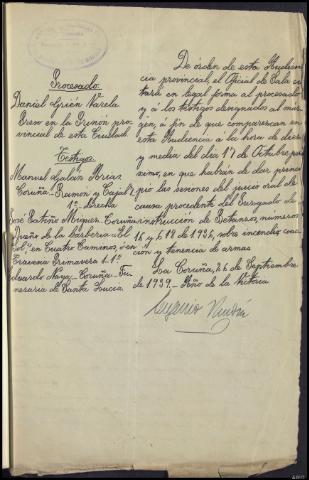 Procesado
Daniel Grién Varela
Preso en la Prisión pro-
vincial de esta Ciudad
Testigos
Manuel Galán Breas
Coruña - Ramón y Cajal
1º Derecha
José Patiño Miguez - Coruña
Dueño de la barbería "El
Sol" en Cuatro Caminos, ó en
Travesía Primavera 1-1º
Eduardo Naya - Coruña - Fu-
neraria de Santa Lucca
De orden de esta Audien-
cia provincial, el Oficial de Sala ci-
tará en legal forma al procesado
y á los testigos designados al mar-
gen, á fin de que comparezcan en
esta Audiencia a la hora de diez
y media del día 17 de Octubre pró-
ximo, en que habrán de dar princi-
pio las sesiones del juicio oral de
causa procedente del Juzgado de
instrucción de Betanzos, números
16 y 118 de 1936, sobre incendio, coac-
ción y tenencia de armas
La Coruña, 26 de Septiembre
de 1939 - Año de la Victoria
Eugenio